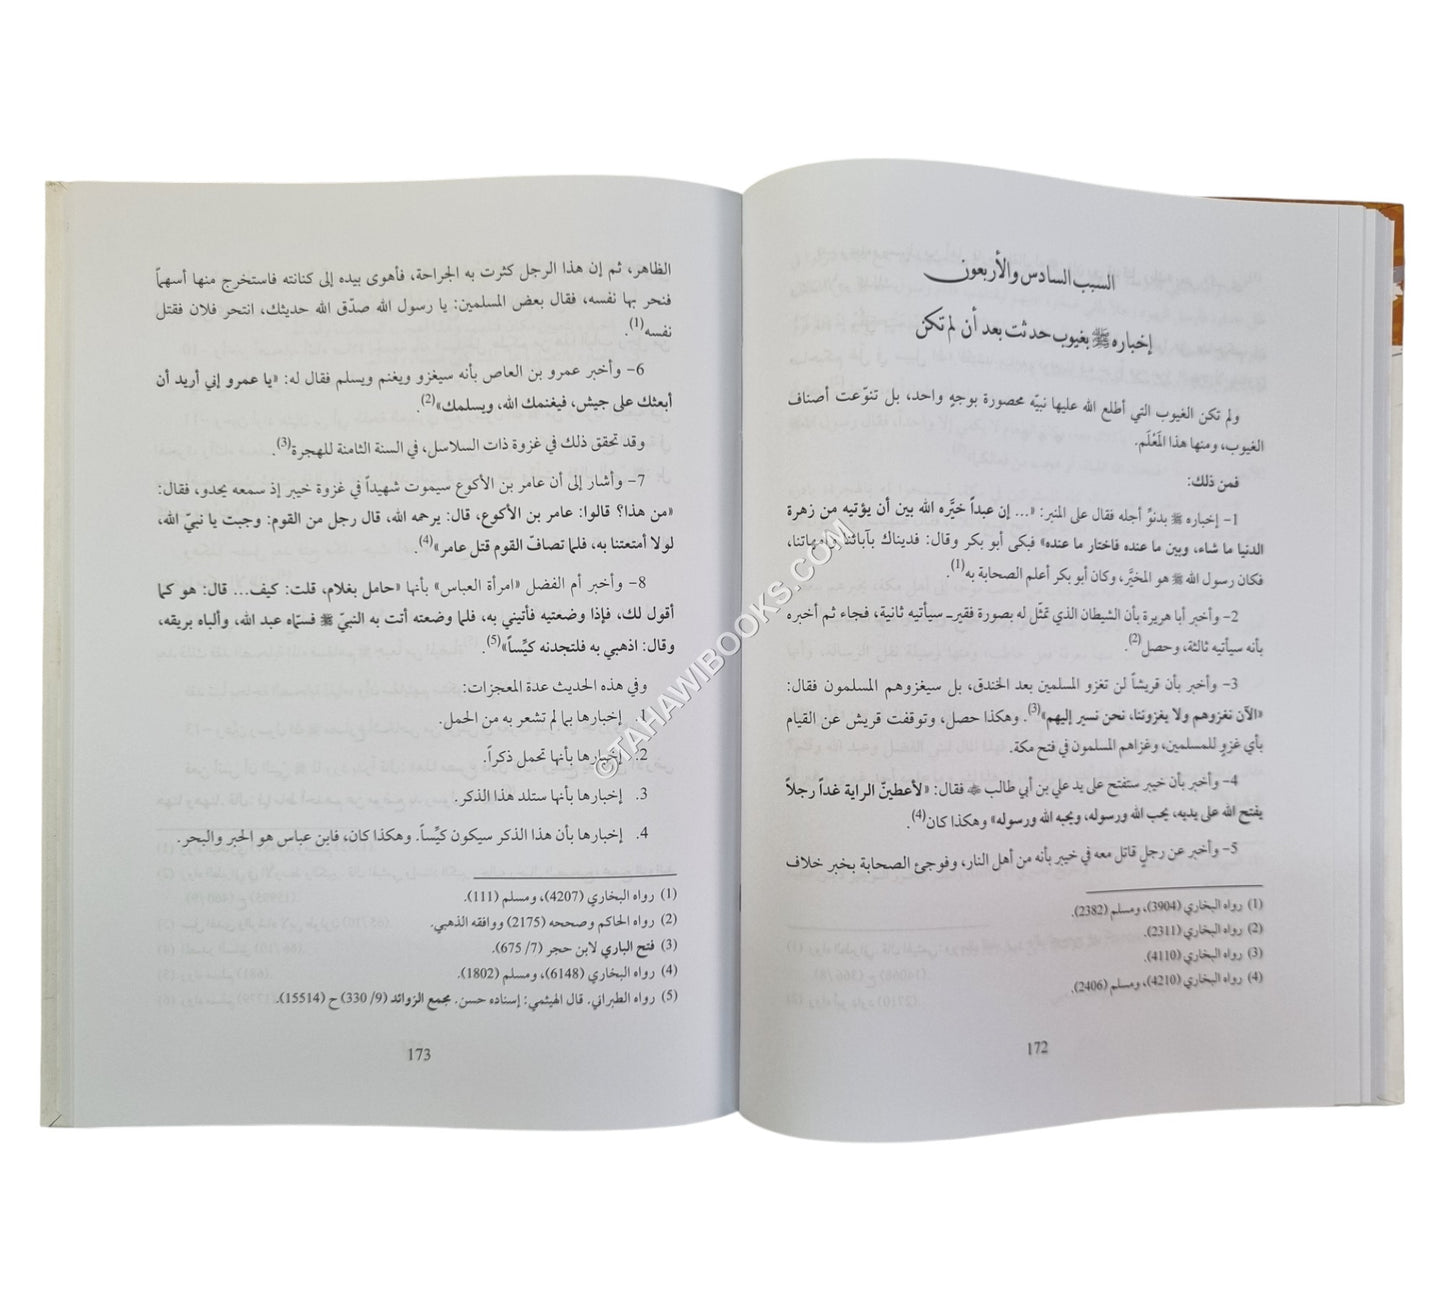 السبب السادس والأربعون
إخباره ﷺ بغيوب حدثت بعد أن لم تكن
ولم تكن الغيوب التي أطلع الله عليها نبيّه محصورة بوجهٍ واحد، بل تنوّعت أصناف
الغيوب، ومنها هذا المَعْلَم.
فمن ذلك:
1- إخباره ﷺ بدنوِّ أجله فقال على المنبر: «... إن عبداً خيَّره الله بين أن يؤتيه من زهرة
الدنيا ما شاء، وبين ما عنده فاختار ما عنده» فبكى أبو بكر وقال: فديناك بآبائنا وأمهاتنا،
فكان رسول الله ﷺ هو المخيَّر، وكان أبو بكر أعلم الصحابة به(1).
2- وأخبر أبا هريرة بأن الشيطان الذي تمثّل له بصورة فقير ـ سيأتيه ثانية، فجاء ثم أخبره
بأنه سيأتيه ثالثة، وحصل(2).
3- وأخبر بأن قريشاً لن تغزو المسلمين بعد الخندق، بل سيغزوهم المسلمون فقال:
«الآن نغزوهم ولا يغزوننا، نحن نسير إليهم»(3). وهكذا حصل، وتوقفت قريش عن القيام
بأي غزوٍ للمسلمين، وغزاهم المسلمون في فتح مكة.
4- وأخبر بأن خيبر ستفتح على يد علي بن أبي طالب فقال: «لأعطينّ الراية غداً رجلاً
يفتح الله على يديه، يحب الله ورسوله، ويحبه الله ورسوله» وهكذا كان(4).
5- وأخبر عن رجلٍ قاتل معه في خيبر بأنه من أهل النار، وفوجئ الصحابة بخبر خلاف
(1) رواه البخاري (3904)، ومسلم (2382).
(2) رواه البخاري (2311).
(3) رواه البخاري (4110).
(4) رواه البخاري (4210)، ومسلم (2406).
172
الظاهر، ثم إن هذا الرجل كثرت به الجراحة، فأهوى بيده إلى كنانته فاستخرج منها أسهماً
فنحر بها نفسه، فقال بعض المسلمين: يا رسول الله صدّق الله حديثك، انتحر فلان فقتل
نفسه(1).
6- وأخبر عمرو بن العاص بأنه سيغزو ويغنم ويسلم فقال له: «يا عمرو إني أريد أن
أبعثك على جيش، فيغنمك الله، ويسلمك»(2).
وقد تحقق ذلك في غزوة ذات السلاسل، في السنة الثامنة للهجرة(3).
7- وأشار إلى أن عامر بن الأكوع سيموت شهيداً في غزوة خيبر إذ سمعه يحدو، فقال:
«من هذا؟ قالوا: عامر بن الأكوع، قال: يرحمه الله، قال رجل من القوم: وجبت يا نبيّ الله،
لولا أمتعتنا به، فلما تصافّ القوم قتل عامر»(4).
8- وأخبر أم الفضل «امرأة العباس» بأنها «حامل بغلام، قلت: كيف... قال: هو كما
أقول لك، فإذا وضعتيه فأتيني به، فلما وضعته أتت به النبيّ ﷺ فسمّاه عبد الله، وألباه بريقه،
وقال: اذهبي به فلتجدنه كيّساً»(5).
وفي هذه الحديث عدة المعجزات:
1. إخبارها بما لم تشعر به من الحمل.
2. إخبارها بأنها تحمل ذكراً.
3. إخبارها بأنها ستلد هذا الذكر.
4. إخبارها بأن هذا الذكر سيكون كيّساً. وهكذا كان، فابن عباس هو الحبر والبحر.
(1) رواه البخاري (4207)، ومسلم (111).
(2) رواه الحاكم وصححه (2175) ووافقه الذهبي.
(3) فتح الباري لابن حجر (7/ 675).
(4) رواه البخاري (6148)، ومسلم (1802).
(5) رواه الطبراني. قال الهيثمي: إسناده حسن. مجمع الزوائد (9/ 330) ح (15514).
173
©TAHAWIBOOKS.COM